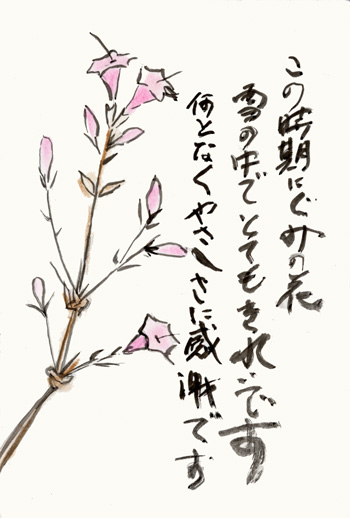 この時期にぐみの花
雪の中でとてもきれいです
何となくやさしさに感謝です